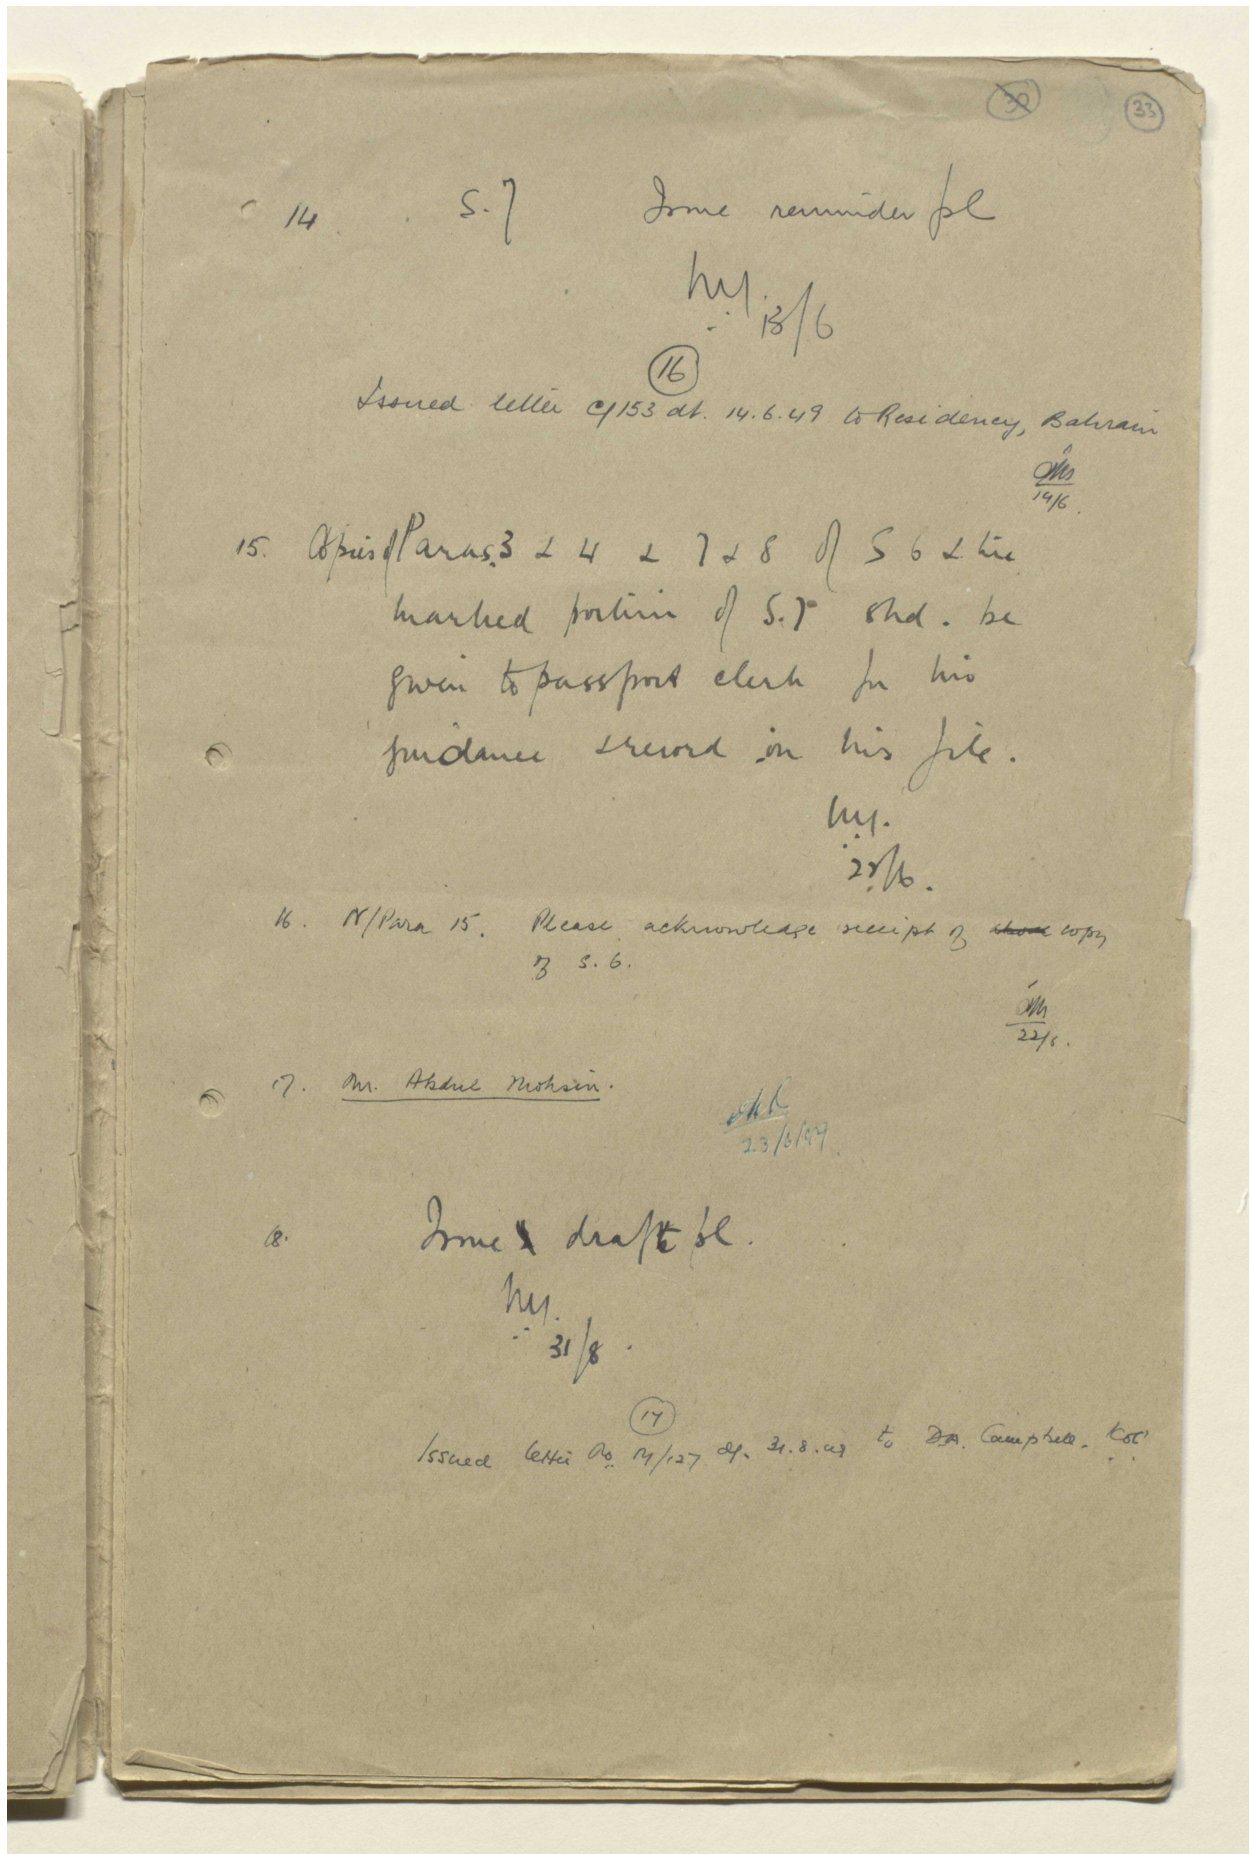 30 33
14 S.7 Issue reminder pl
13/6
16
Issued letter C/153 dt. 14.6.49 to Residency, Bahrain
14/6.
15. Copies of Paras. 3 & 4 & 7 & 8 of S 6 & the
marked portion of S.7 shd. be
given to passport clerk for his
guidance & record on his file.
16. N/Para 15. Please acknowledge receipt of copy
of S. 6.
22/6.
17. Mr. Abdul Mohsin.
23/6/49.
18. Issue draft pl.
31/8.
17
Issued letter No. M/127 dt. 31.8.49 to DR. Campbell. KOC